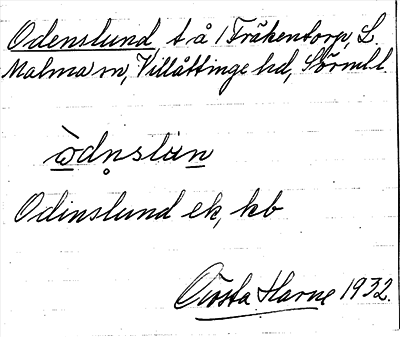 Odenslund, t å 1 Fråkentorp, L.
Malma sn, Villåttinge hd, Sörml l.
ò̱dn̥slun̲
Odinslund ek, kb
Gösta Harne 1932.